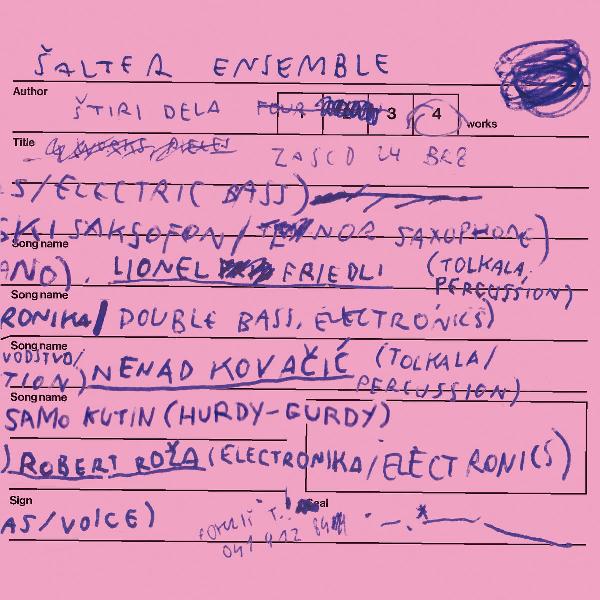 ŠALTER ENSEMBLE
Author
ŠTIRI DELA FOUR 3 4 works
Title
S/ELECTRIC BASS)
SKI SAKSOFON/TENOR SAXOPHONE)
Song name
ANO). LIONEL FRIEDLI (TOLKALA,
PERCUSSION)
Song name
RONIKA/ DOUBLE BASS, ELECTRONICS)
Song name
VODSTVO/
TION) NENAD KOVAČIČ (TOLKALA/
PERCUSSION)
Song name
SAMO KUTIN (HURDY-GURDY)
) ROBERT ROŽA (ELECTRONIKA/ELECTRONICS)
Sign Seal
AS/VOICE)